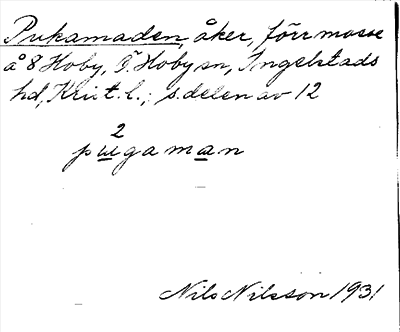 Pukamaden, åker, förr mosse
å 8 Hoby, Ö. Hoby sn, Ingelstads
hd, Krist. l.; s. delen av 12
2
pugaman
Nils Nilsson 1931